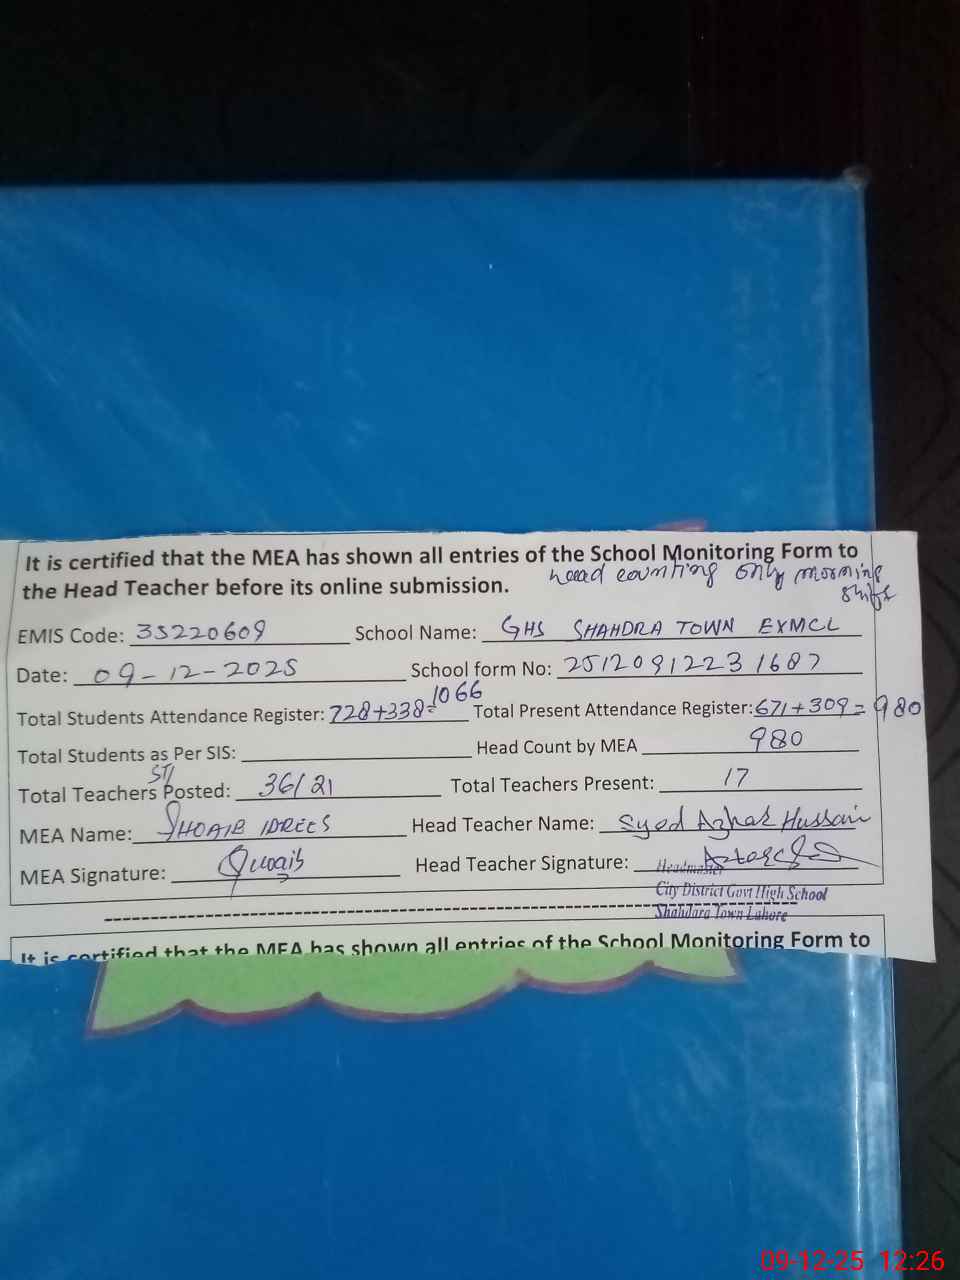 It is certified that the MEA has shown all entries of the School Monitoring Form to
the Head Teacher before its online submission.
head counting only morning
shift
EMIS Code: 35220609 School Name: GHS SHAHDRA TOWN EXMCL
Date: 09-12-2025 School form No: 2512091223 1687
Total Students Attendance Register: 728+338=1066 Total Present Attendance Register: 671+309=980
Total Students as Per SIS: Head Count by MEA 980
STI
Total Teachers Posted: 36/21 Total Teachers Present: 17
MEA Name: SHOAIB IDREES Head Teacher Name: Syed Azhar Hussain
MEA Signature: Shoaib Head Teacher Signature:
Headmaster
City District Govt High School
Shahdara Town Lahore
It is certified that the MEA has shown all entries of the School Monitoring Form to
09-12-25 12:26